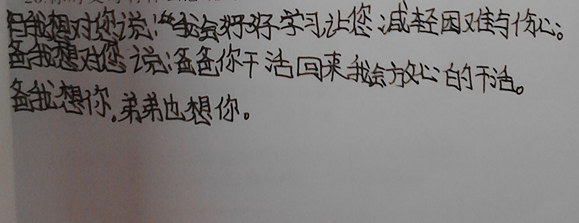 我想对您说:“我会好好学习让您减轻困难与伤心。
爸我想对您说:爸爸你干活回来我会放心的干活。
爸我想你,弟弟也想你。